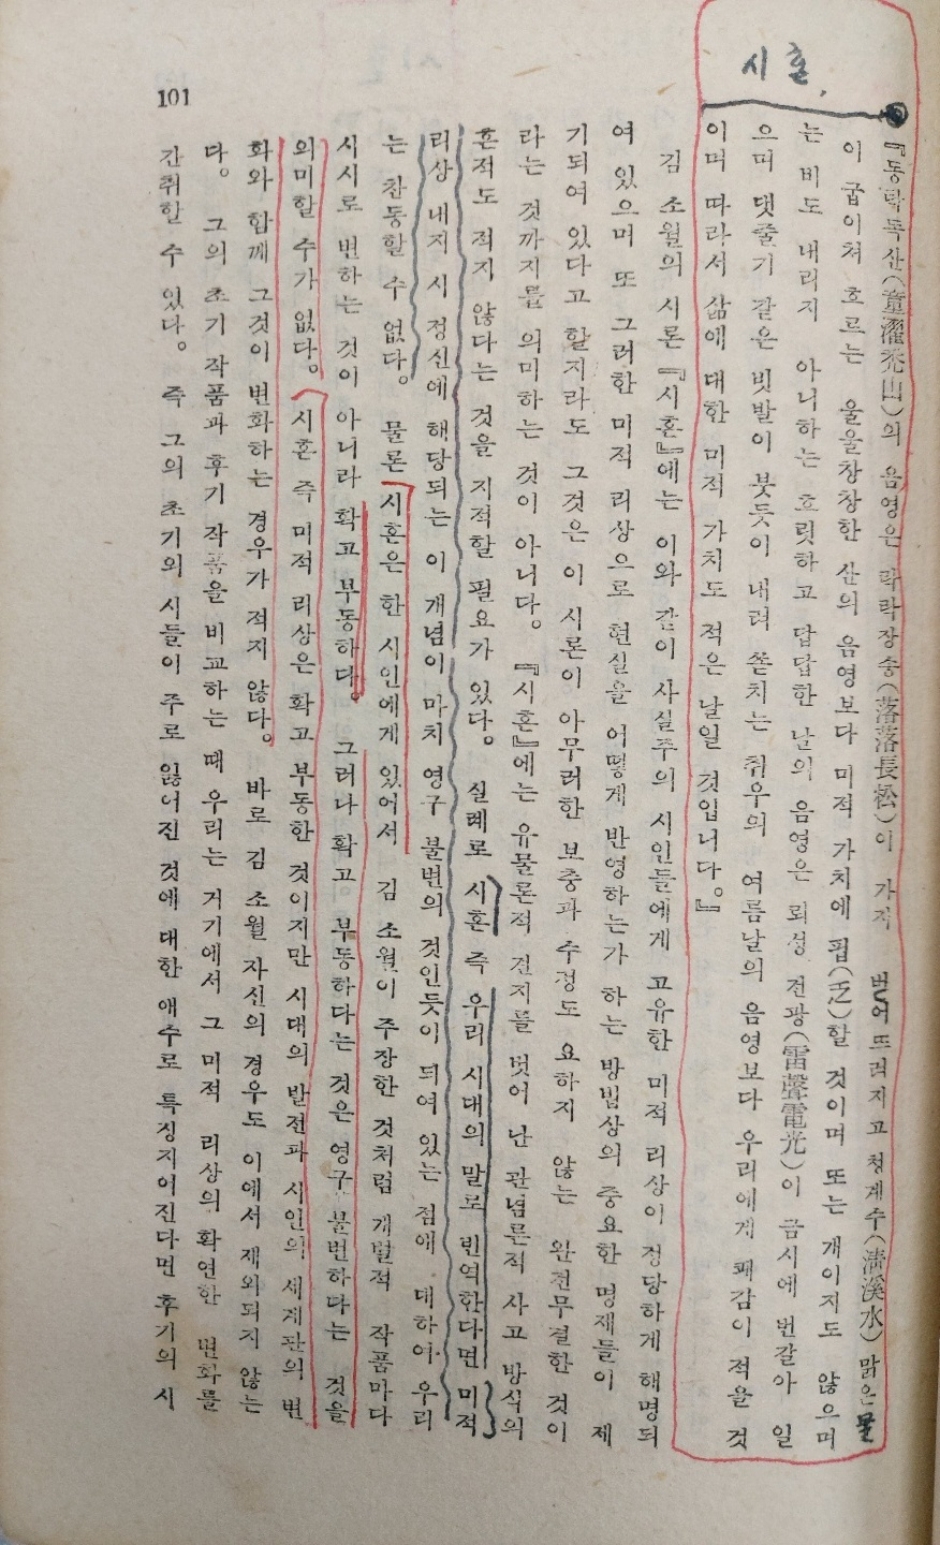 시혼.
『동탁독산(童濯禿山)의 음영은 락락장송(落落長松)이 가지 벋어 뜨러지고 청계수(淸溪水) 맑은 물
이 굽이쳐 흐르는 울울창창한 산의 음영보다 미적 가치에 핍(乏)할 것이며 또는 개이지도 않으며
는 비도 내리지 아니하는 흐릿하고 답답한 날의 음영은 뢰성 전광(雷聲電光)이 금시에 번갈아 일
으며 댓줄기 같은 빗발이 붓듯이 내려 쏟치는 취우의 여름날의 음영보다 우리에게 쾌감이 적을 것
이며 따라서 삶에 대한 미적 가치도 적은 날일 것입니다.』
김 소월의 시론 『시혼』에는 이와 같이 사실주의 시인들에게 고유한 미적 리상이 정당하게 해명되
여 있으며 또 그러한 미적 리상으로 현실을 어떻게 반영하는가 하는 방법상의 중요한 명제들이 제
기되여 있다고 할지라도 그것은 이 시론이 아무러한 보충과 수정도 요하지 않는 완전무결한 것이
라는 것까지를 의미하는 것이 아니다. 『시혼』에는 유물론적 견지를 벗어 난 관념론적 사고 방식의
흔적도 적지 않다는 것을 지적할 필요가 있다. 실례로 시혼 즉 우리 시대의 말로 번역한다면 미적
리상 내지 시 정신에 해당되는 이 개념이 마치 영구 불변의 것인듯이 되여 있는 점에 대하여 우리
는 찬동할 수 없다. 물론 시혼은 한 시인에게 있어서 김 소월이 주장한 것처럼 개별적 작품마다
시시로 변하는 것이 아니라 확고 부동하다. 그러나 확고 부동하다는 것은 영구 불변하다는 것을
의미할 수가 없다. 시혼 즉 미적 리상은 확고 부동한 것이지만 시대의 발전과 시인의 세계관의 변
화와 함께 그것이 변화하는 경우가 적지 않다. 바로 김 소월 자신의 경우도 이에서 제외되지 않는
다. 그의 초기 작품과 후기 작품을 비교하는 때 우리는 거기에서 그 미적 리상의 확연한 변화를
간취할 수 있다. 즉 그의 초기의 시들이 주로 잃어진 것에 대한 애수로 특징지어진다면 후기의 시
101